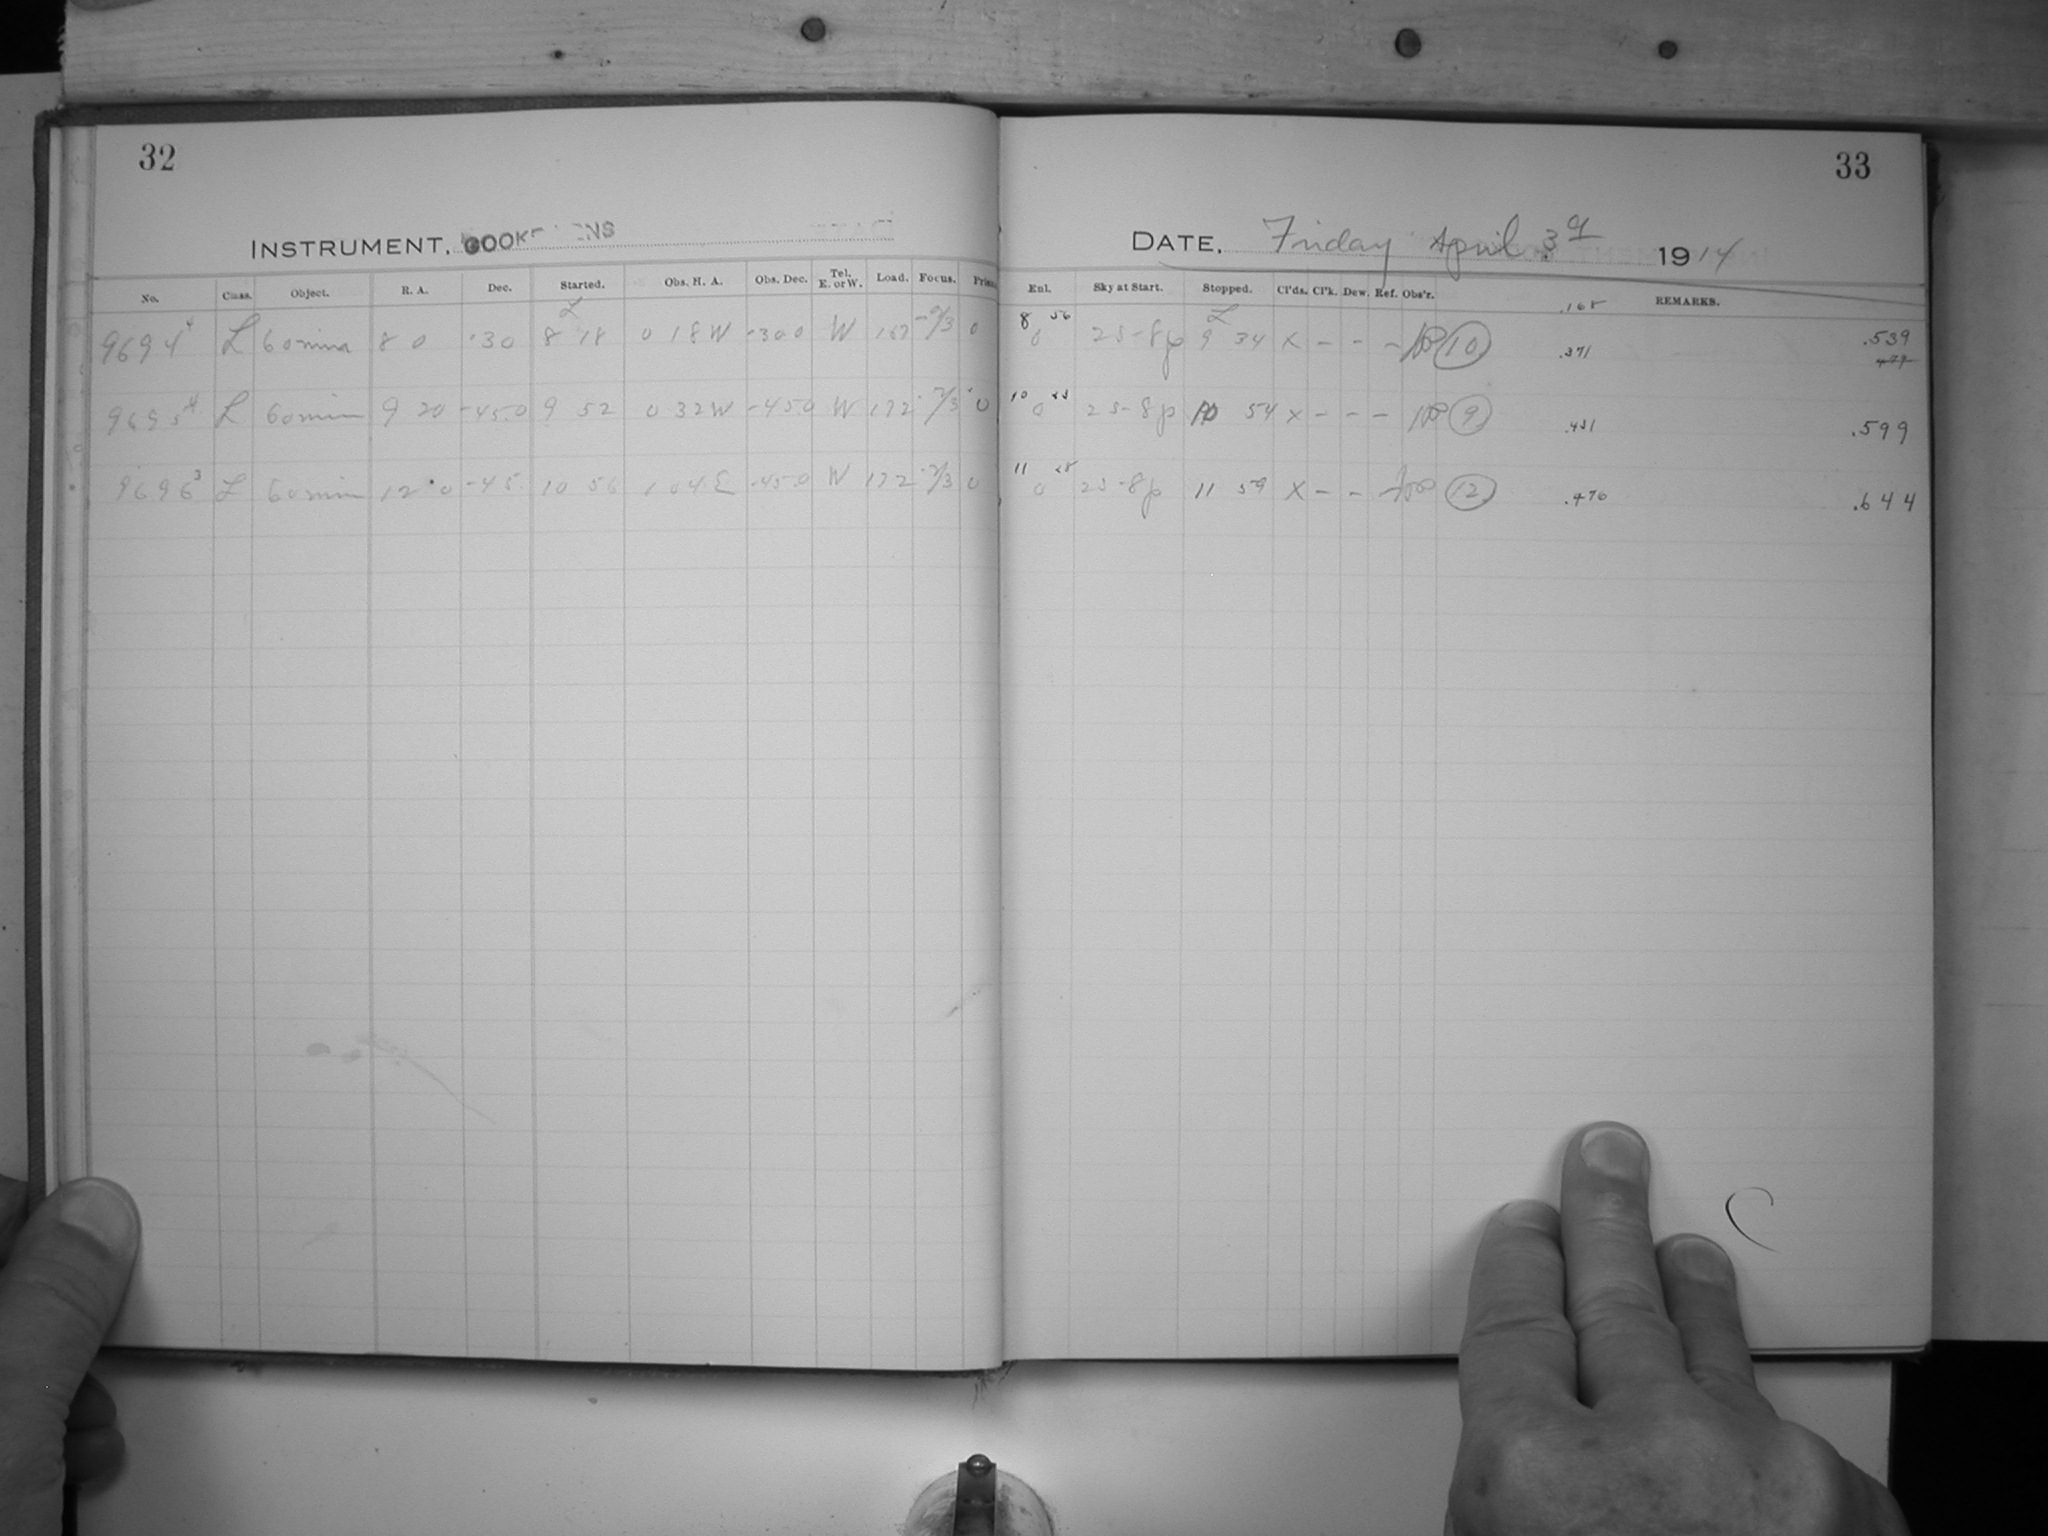 32
INSTRUMENT, COOKE LENS
No. Class. Object. R. A. Dec. Started. Obs. H. A. Obs. Dec. Tel. E. or W. Load. Focus. Prism
9694 4 L 60 mins 8 0 -30 8 18 0 18 W -30 0 W 0
9695 4 L 60 min 9 20 -45.0 9 52 0 32 W -45 0 W 172 0
9696 3 L 60 min 12 0 -45 10 56 1 04 E -45 0 W 172 0
33
DATE, Friday April 3d 1914
Enl. Sky at Start. Stopped. Cl'ds. Cl'k. Dew. Ref. Obs'r. REMARKS.
8 56 0 25-8p 9 34 X - - - 10 .371 .539
10 23 0 25-8p 10 54 X - - - 9 .431 .599
11 28 0 25-8p 11 59 X - - - 12 .476 .644